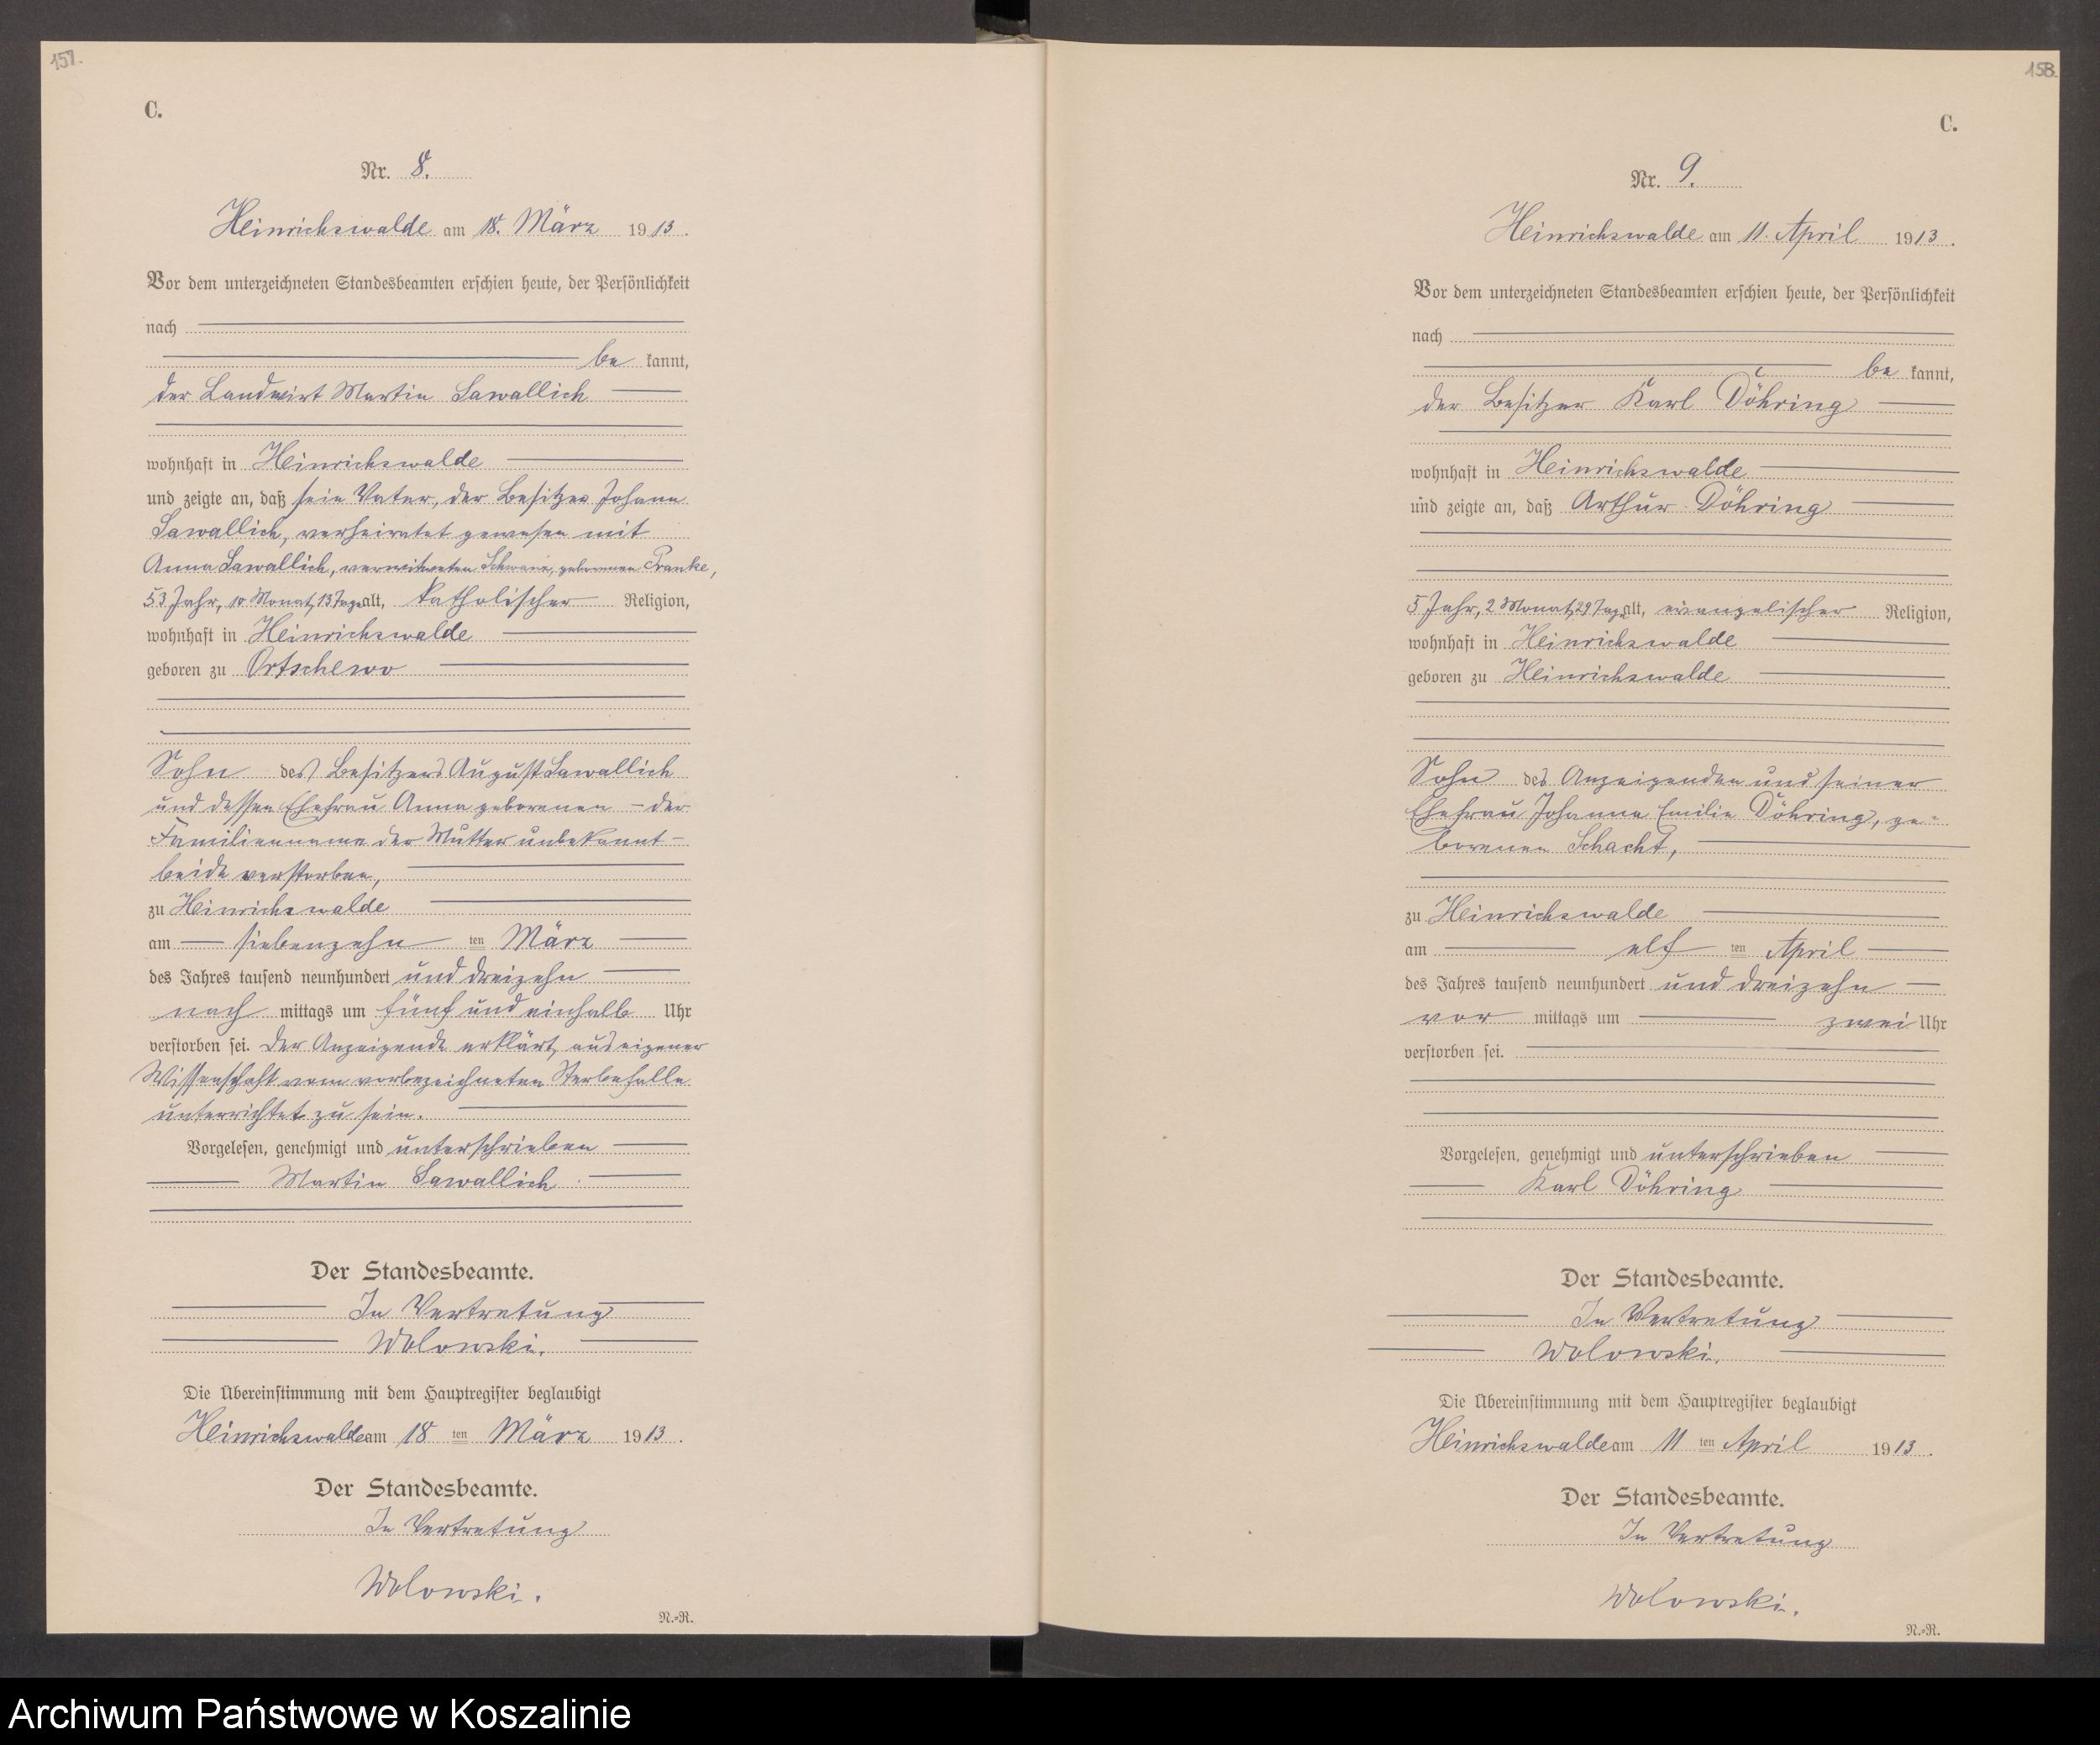 157.
C.
Nr. 8.
Heinrichswalde am 18. März 1913.
Vor dem unterzeichneten Standesbeamten erschien heute, der Persönlichkeit
nach
be kannt,
der Landwirt Martin Sawallich
wohnhaft in Heinrichswalde
und zeigte an, daß sein Vater, der Besitzer Johann
Sawallich, verheiratet gewesen mit
Anna Sawallich, verwitweten geborenen Franke,
53 Jahr, 10 Monat, 13 Tage alt, katholischer Religion,
wohnhaft in Heinrichswalde
geboren zu Ortschewo
Sohn des Besitzers August Sawallich
und dessen Ehefrau Anna geborenen - der
Familienname der Mutter unbekannt -
beide verstorben,
zu Heinrichswalde
am siebenzehn ten März
des Jahres tausend neunhundert und dreizehn
nach mittags um fünf und einhalb Uhr
verstorben sei. Der Anzeigende erklärt, aus eigener
Wissenschaft vom vorbezeichneten Sterbefalle
unterrichtet zu sein.
Vorgelesen, genehmigt und unterschrieben
Martin Sawallich
Der Standesbeamte.
In Vertretung
Wolowski.
Die Übereinstimmung mit dem Hauptregister beglaubigt
Heinrichswalde am 18 ten März 1913.
Der Standesbeamte.
In Vertretung
Wolowski.
N.-R.
158.
C.
Nr. 9.
Heinrichswalde am 11. April 1913.
Vor dem unterzeichneten Standesbeamten erschien heute, der Persönlichkeit
nach
be kannt,
der Besitzer Karl Döhring
wohnhaft in Heinrichswalde
und zeigte an, daß Arthur Döhring
5 Jahr, 2 Monat, 29 Tage alt, evangelischer Religion,
wohnhaft in Heinrichswalde
geboren zu Heinrichswalde
Sohn des Anzeigenden und seiner
Ehefrau Johanna Emilie Döhring, ge-
borenen Schacht,
zu Heinrichswalde
am elf ten April
des Jahres tausend neunhundert und dreizehn
vor mittags um zwei Uhr
verstorben sei.
Vorgelesen, genehmigt und unterschrieben
Karl Döhring
Der Standesbeamte.
In Vertretung
Wolowski.
Die Übereinstimmung mit dem Hauptregister beglaubigt
Heinrichswalde am 11 ten April 1913.
Der Standesbeamte.
In Vertretung
Wolowski.
N.-R.
Archiwum Państwowe w Koszalinie